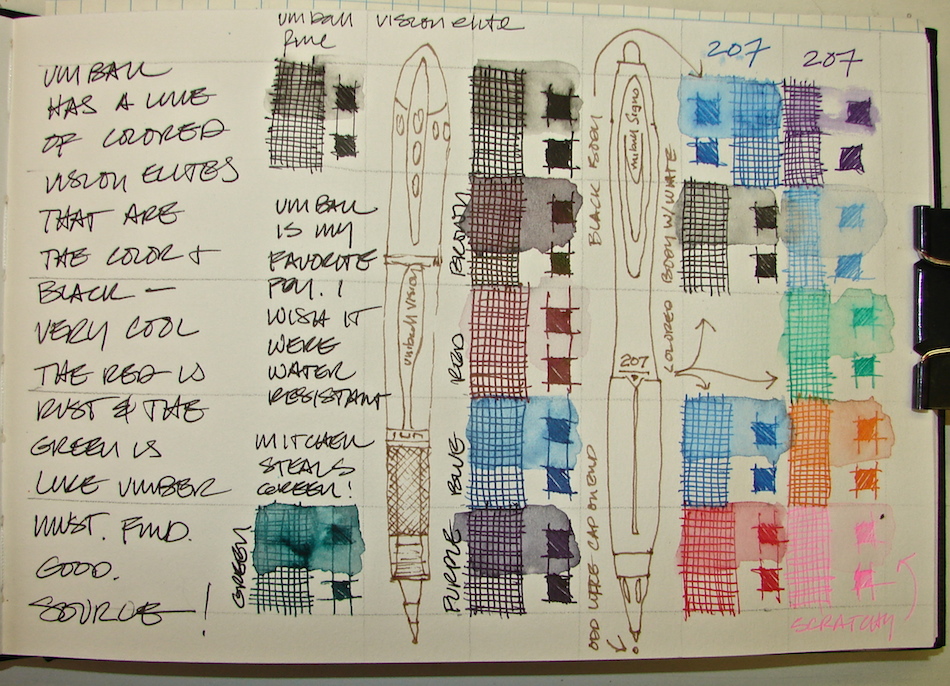 UNIBALL
HAS A LINE
OF COLORED
VISION ELITES
THAT ARE
THE COLOR +
BLACK —
VERY COOL
THE RED IS
RUST & THE
GREEN IS
LIKE UMBER
MUST. FIND.
GOOD.
SOURCE — !
uniball vision elite
fine
UNIBALL
IS MY
FAVORITE
PEN. I
WISH IT
WERE
WATER
RESISTANT
MITCHELL
STEALS
GREEN!
GREEN!
uniball Vision
BROWN
RED
BLUE
PURPLE
BLACK BODY
uniball Signo
207
COLORED BODY W/WHITE
ODD LITTLE CAP ON END
207
207
SCRATCHY